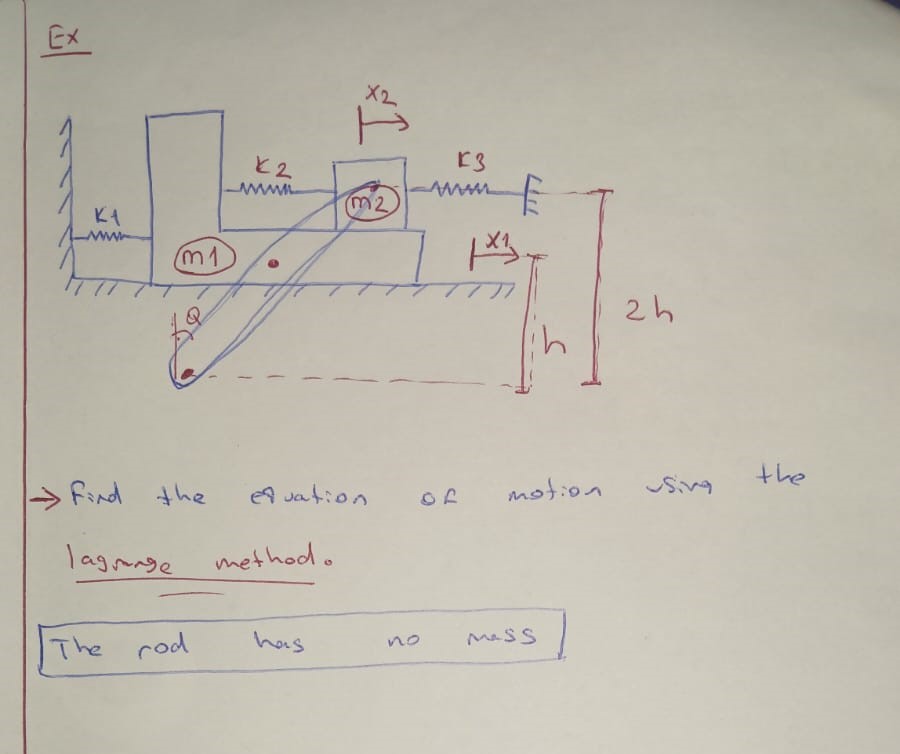 Ex
x2
K2
K3
K1
m2
m1
x1
Q
h
2h
→ Find the equation of motion using the
lagrange method.
The rod has no mass